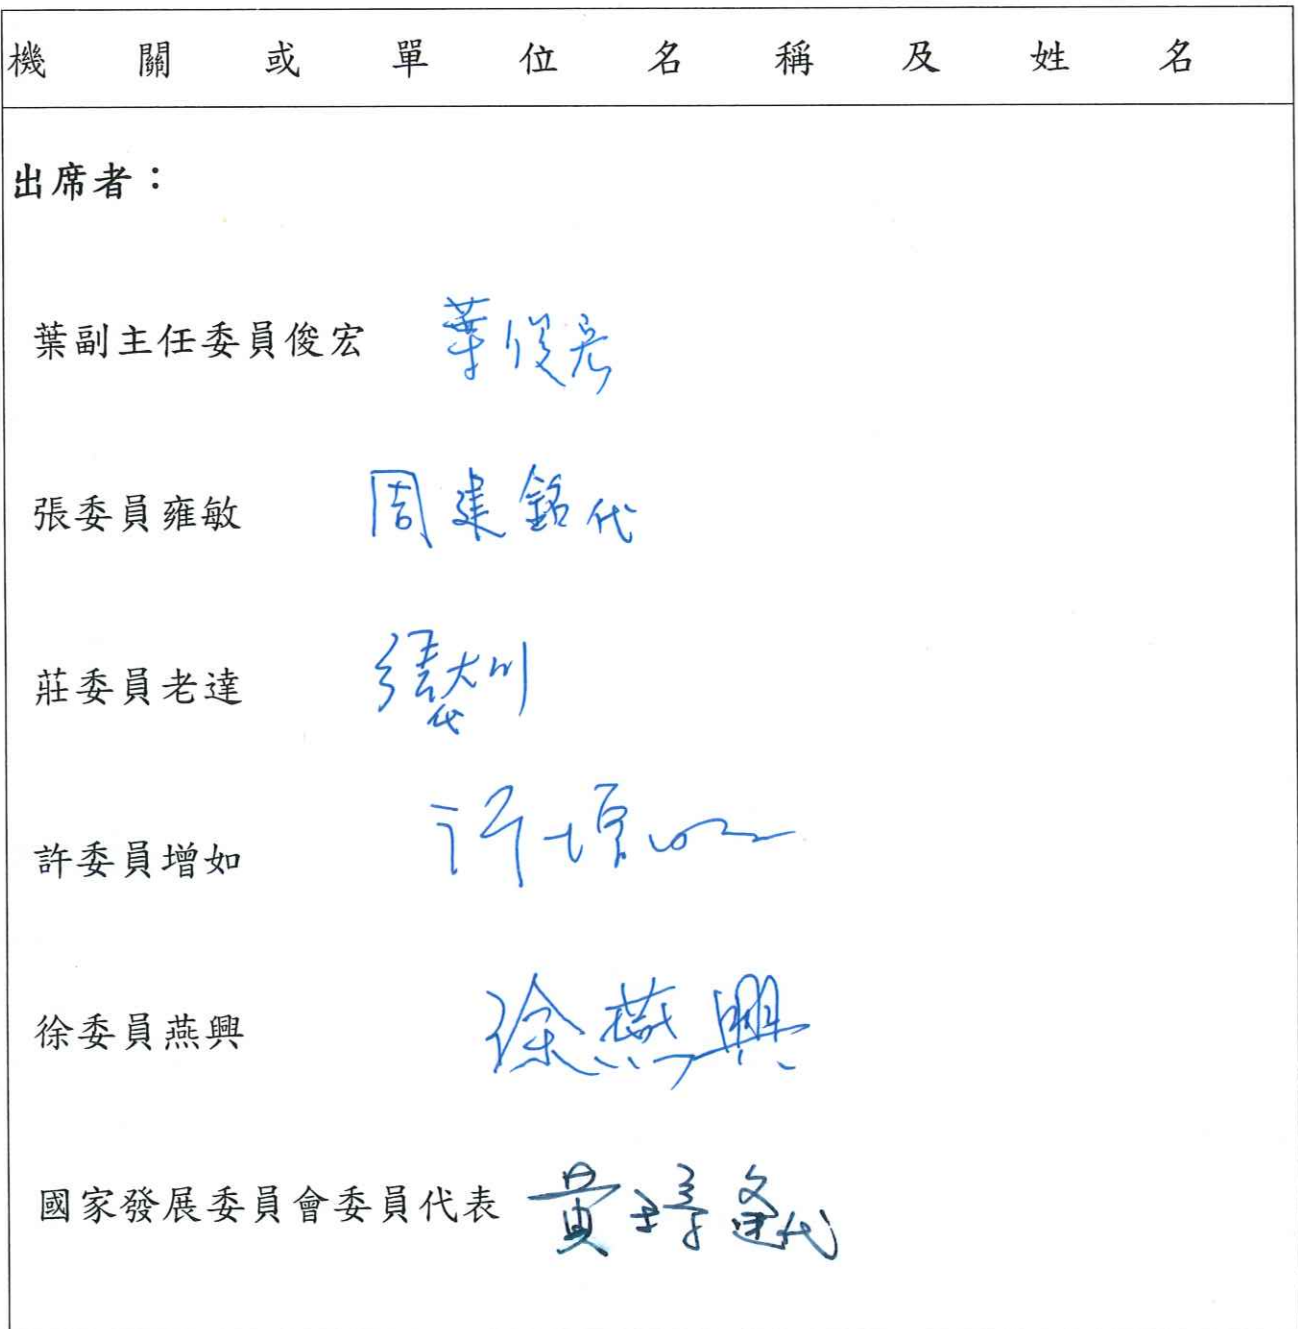 機關或單位名稱及姓名
出席者：
葉副主任委員俊宏 葉俊宏
張委員雍敏 周建銘代
莊委員老達 張大川代
許委員增如 許增如
徐委員燕興 徐燕興
國家發展委員會委員代表 黃 代